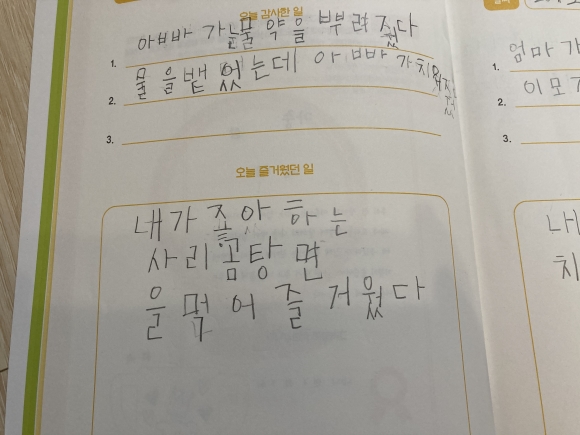 오늘 감사한 일
아빠바 가 눈물 약을 뿌려 줬다
1.
물 을 뱉 었는데 아빠 가 치워
2.
3.
오늘 즐거웠던 일
내가 죠아 하 는
사리 곰탕 면
을 먹 어 즐 거웠다
엄마 가
1.
이모
2.
3.
내
치